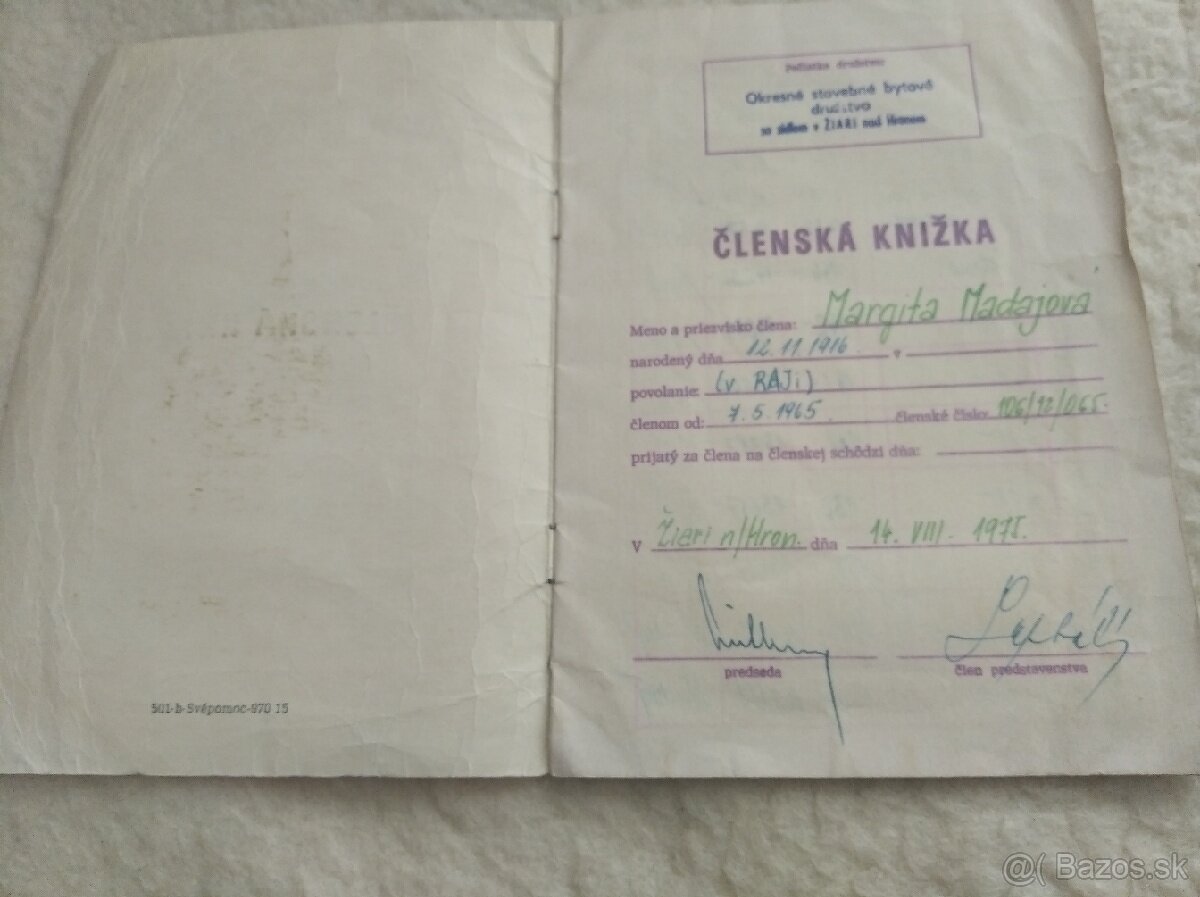 Pečiatka družstva:
Okresné stavebné bytové
družstvo
so sídlom v ŽIARI nad Hronom
ČLENSKÁ KNIŽKA
Meno a priezvisko člena: Margita Madajová
narodený dňa 12. 11. 1916. v
povolanie: (v RAJi)
členom od: 7. 5. 1965. členské číslo: 106/12/065.
prijatý za člena na členskej schôdzi dňa:
V Žieri n/Hron. dňa 14. VIII. 1975.
predseda člen predstavenstva
501-b-Svépomoc-970 15
@( Bazos.sk